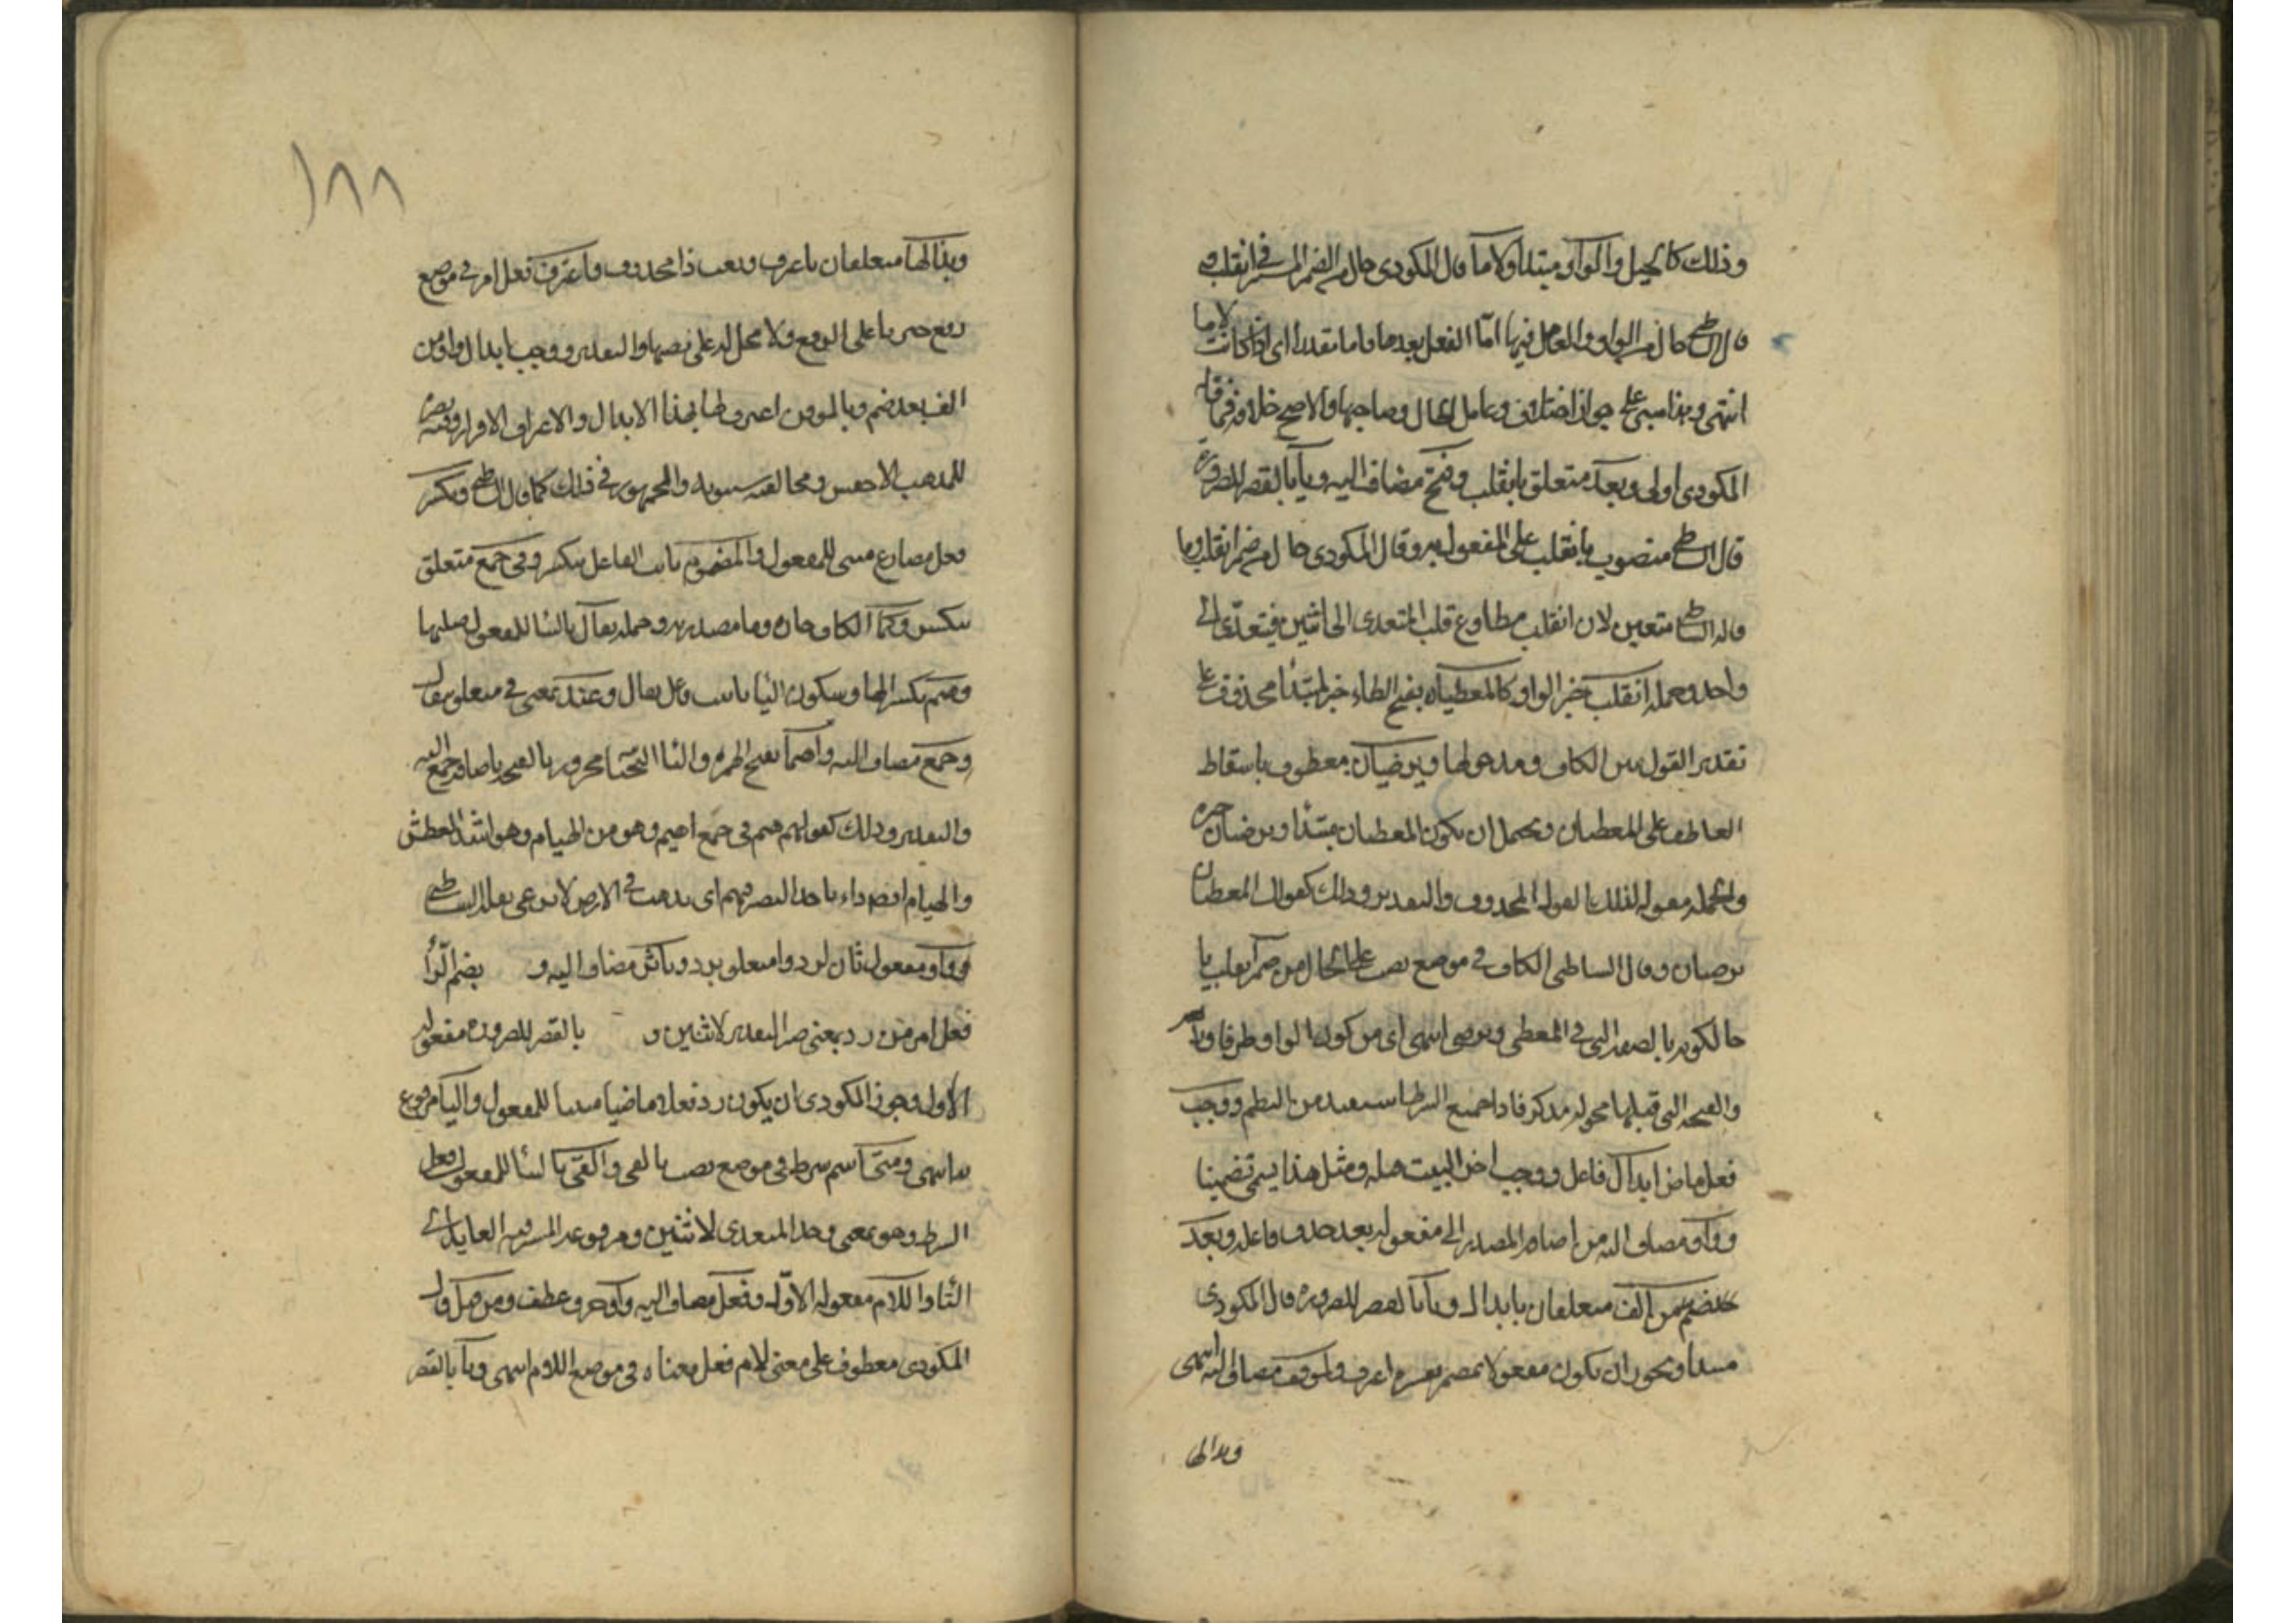 وذلك كالحيل والواو مبتدا ولاما قال المكودى حال من الضمير المستتر فى انقلب و
قال الشاطبى حال من الواو والعامل فيها اما الفعل بعدها واما مقدرا اى اذا كانت لاما
انتهى وهذا مبنى على جواز اختلاف وعامل الحال وصاحبها والاصح خلافه فما قاله
المكودى اولى وبعد متعلق بانقلب وفتح مضاف اليه ويا بالقصر للضرورة
قال الشاطبى منصوب بانقلب على المفعول به وقال المكودى حال من ضمير انقلب وما
قاله الشاطبى متعين لان انقلب مطاوع قلب المتعدى الى اثنين فيتعدى الى
واحد وجملة انقلب خبر الواو كالمعطيان بفتح الطاء خبر لمبتدا محذوف على
تقدير القول بين الكاف ومدخولها ويرضيان معطوف باسقاط
العاطف على المعطيان ويحتمل ان يكون المعطيان مبتدا ويرضيان خبره
والجملة مقولة لذلك القول المحذوف والتقدير وذلك كقولك المعطيان
يرضيان وقال الشاطبى الكاف فى موضع نصب على الحال من ضمير انقلب يا
حا لكونه بالصفة التى فى المعطى ويرضى انتهى اى من كون الواو طرفا
والفتحة التى قبلها محوله مذكر فاذا جميع الشرط مستفيد من النظم ووجب
فعل ماض ابدال فاعل ووجب اخر البيت قبله ومثل هذا يسمى تضمينا
وواو مضاف اليه من اضافة المصدر الى مفعوله بعد حذف فاعله وبعد
ضم من الف متعلقان بابدال ويا بالقصر للضرورة قال المكودى
مبتدا ويجوز ان يكون مفعولا بمضمر يفسره اعرف ولموقن مضاف اليه انتهى
وبذالها
وبذا لها متعلقان باعرف ونعت ذا محذوف واعترف فعل امر فى موضع
رفع خبر يا على الرفع ولا محل له على نصبها والتقدير ووجب ابدال واو من
الف بعد ضم ويا لموقن اعترف لها بهذا الابدال والاعراف الاقرار وفيه نصر
للمذهب الاخفس ومخالفة سيبويه والجمهور فى ذلك كما قال الشاطبى ويكسر
فعل مضارع مبنى للمفعول والمضموم نائب الفاعل بيكسر وفى جمع متعلق
بيكسر وكما الكاف جارة وما مصدرية وجملة يقال بالبنا للمفعول صلتها
وهيم بكسر الها وسكون اليا نائب فاعل يقال وعند بمعنى فى متعلق بيقال
وجمع مضاف اليه واهيما بفتح الهمزة واليا التحتيا مجرور بالفتحة باضافة جمع اليه
والتقدير وذلك كقولهم هيم فى جمع اهيم وهو من الهيام وهو اشد العطش
والهيام ايضا داء ياخذ البصر فيهيم اى يذهب فى الارض لا يرعى نقله الشاطبى
وواو مفعول ثان لرد واثر متعلق برد وباثر مضاف اليه و بضم الرا
فعل امر من رد بمعنى صير المتعدى لاثنين و بالقصر للضرورة مفعوله
الاول وجوز المكودى ان يكون رد فعلا ماضيا مبنيا للمفعول واليا مرفوع
بها انتهى ومتى اسم شرط فى موضع نصب بالفى والفى بالبنا للمفعول فعل
الشرط وهو بمعنى وجد المتعدى لاثنين ومرفوعه المستتر فيه العايد الى
اليا واللام مفعوله الاول وفعل مضاف اليه واو حرف عطف ومن قبل قال
المكودى معطوف على معنى لام فعل معناه فى موضع اللام انتهى وتا بالقصر
١٨٨